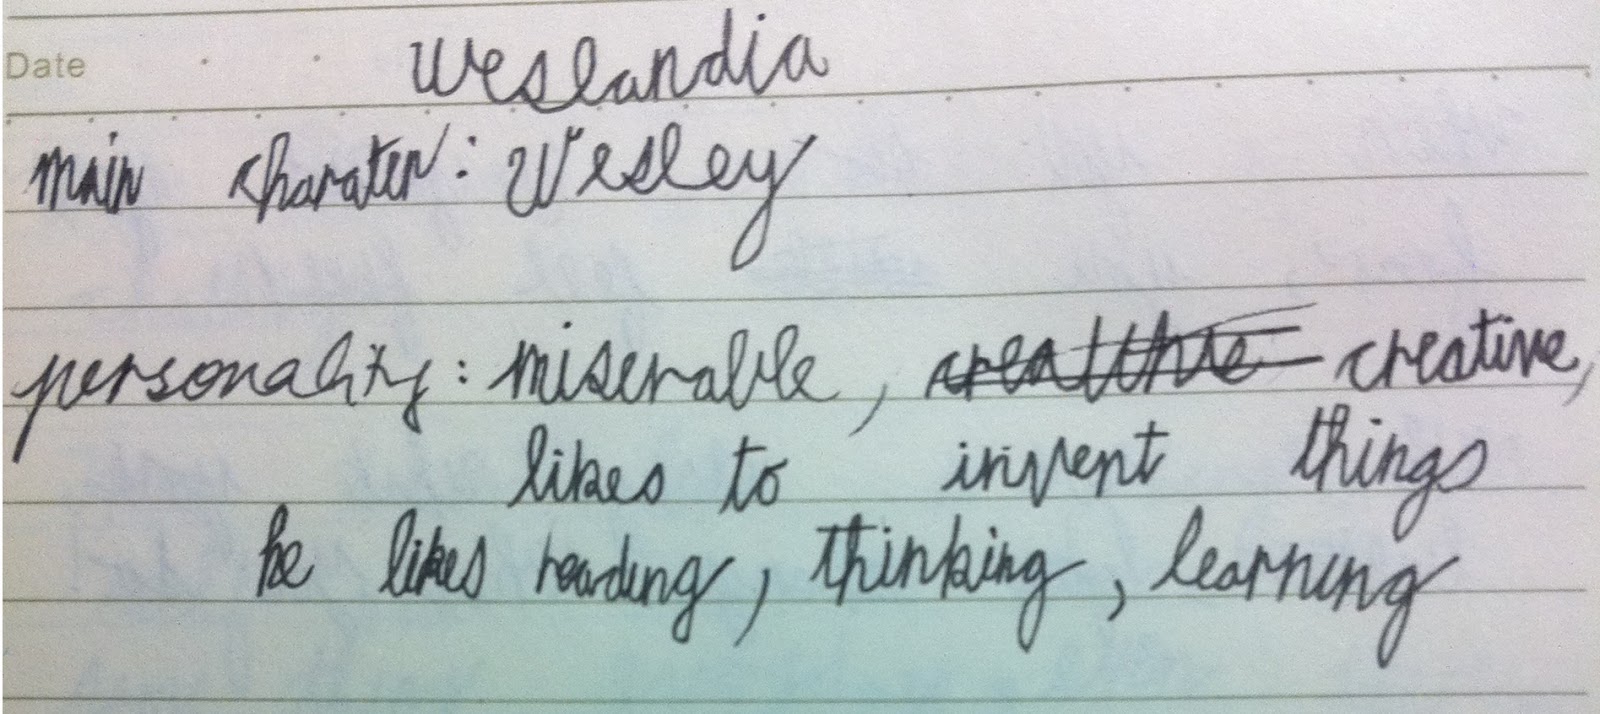 Date
Weslandia
main charater: Wesley
personality: miserable, creative,
likes to invent things
he likes reading, thinking, learning